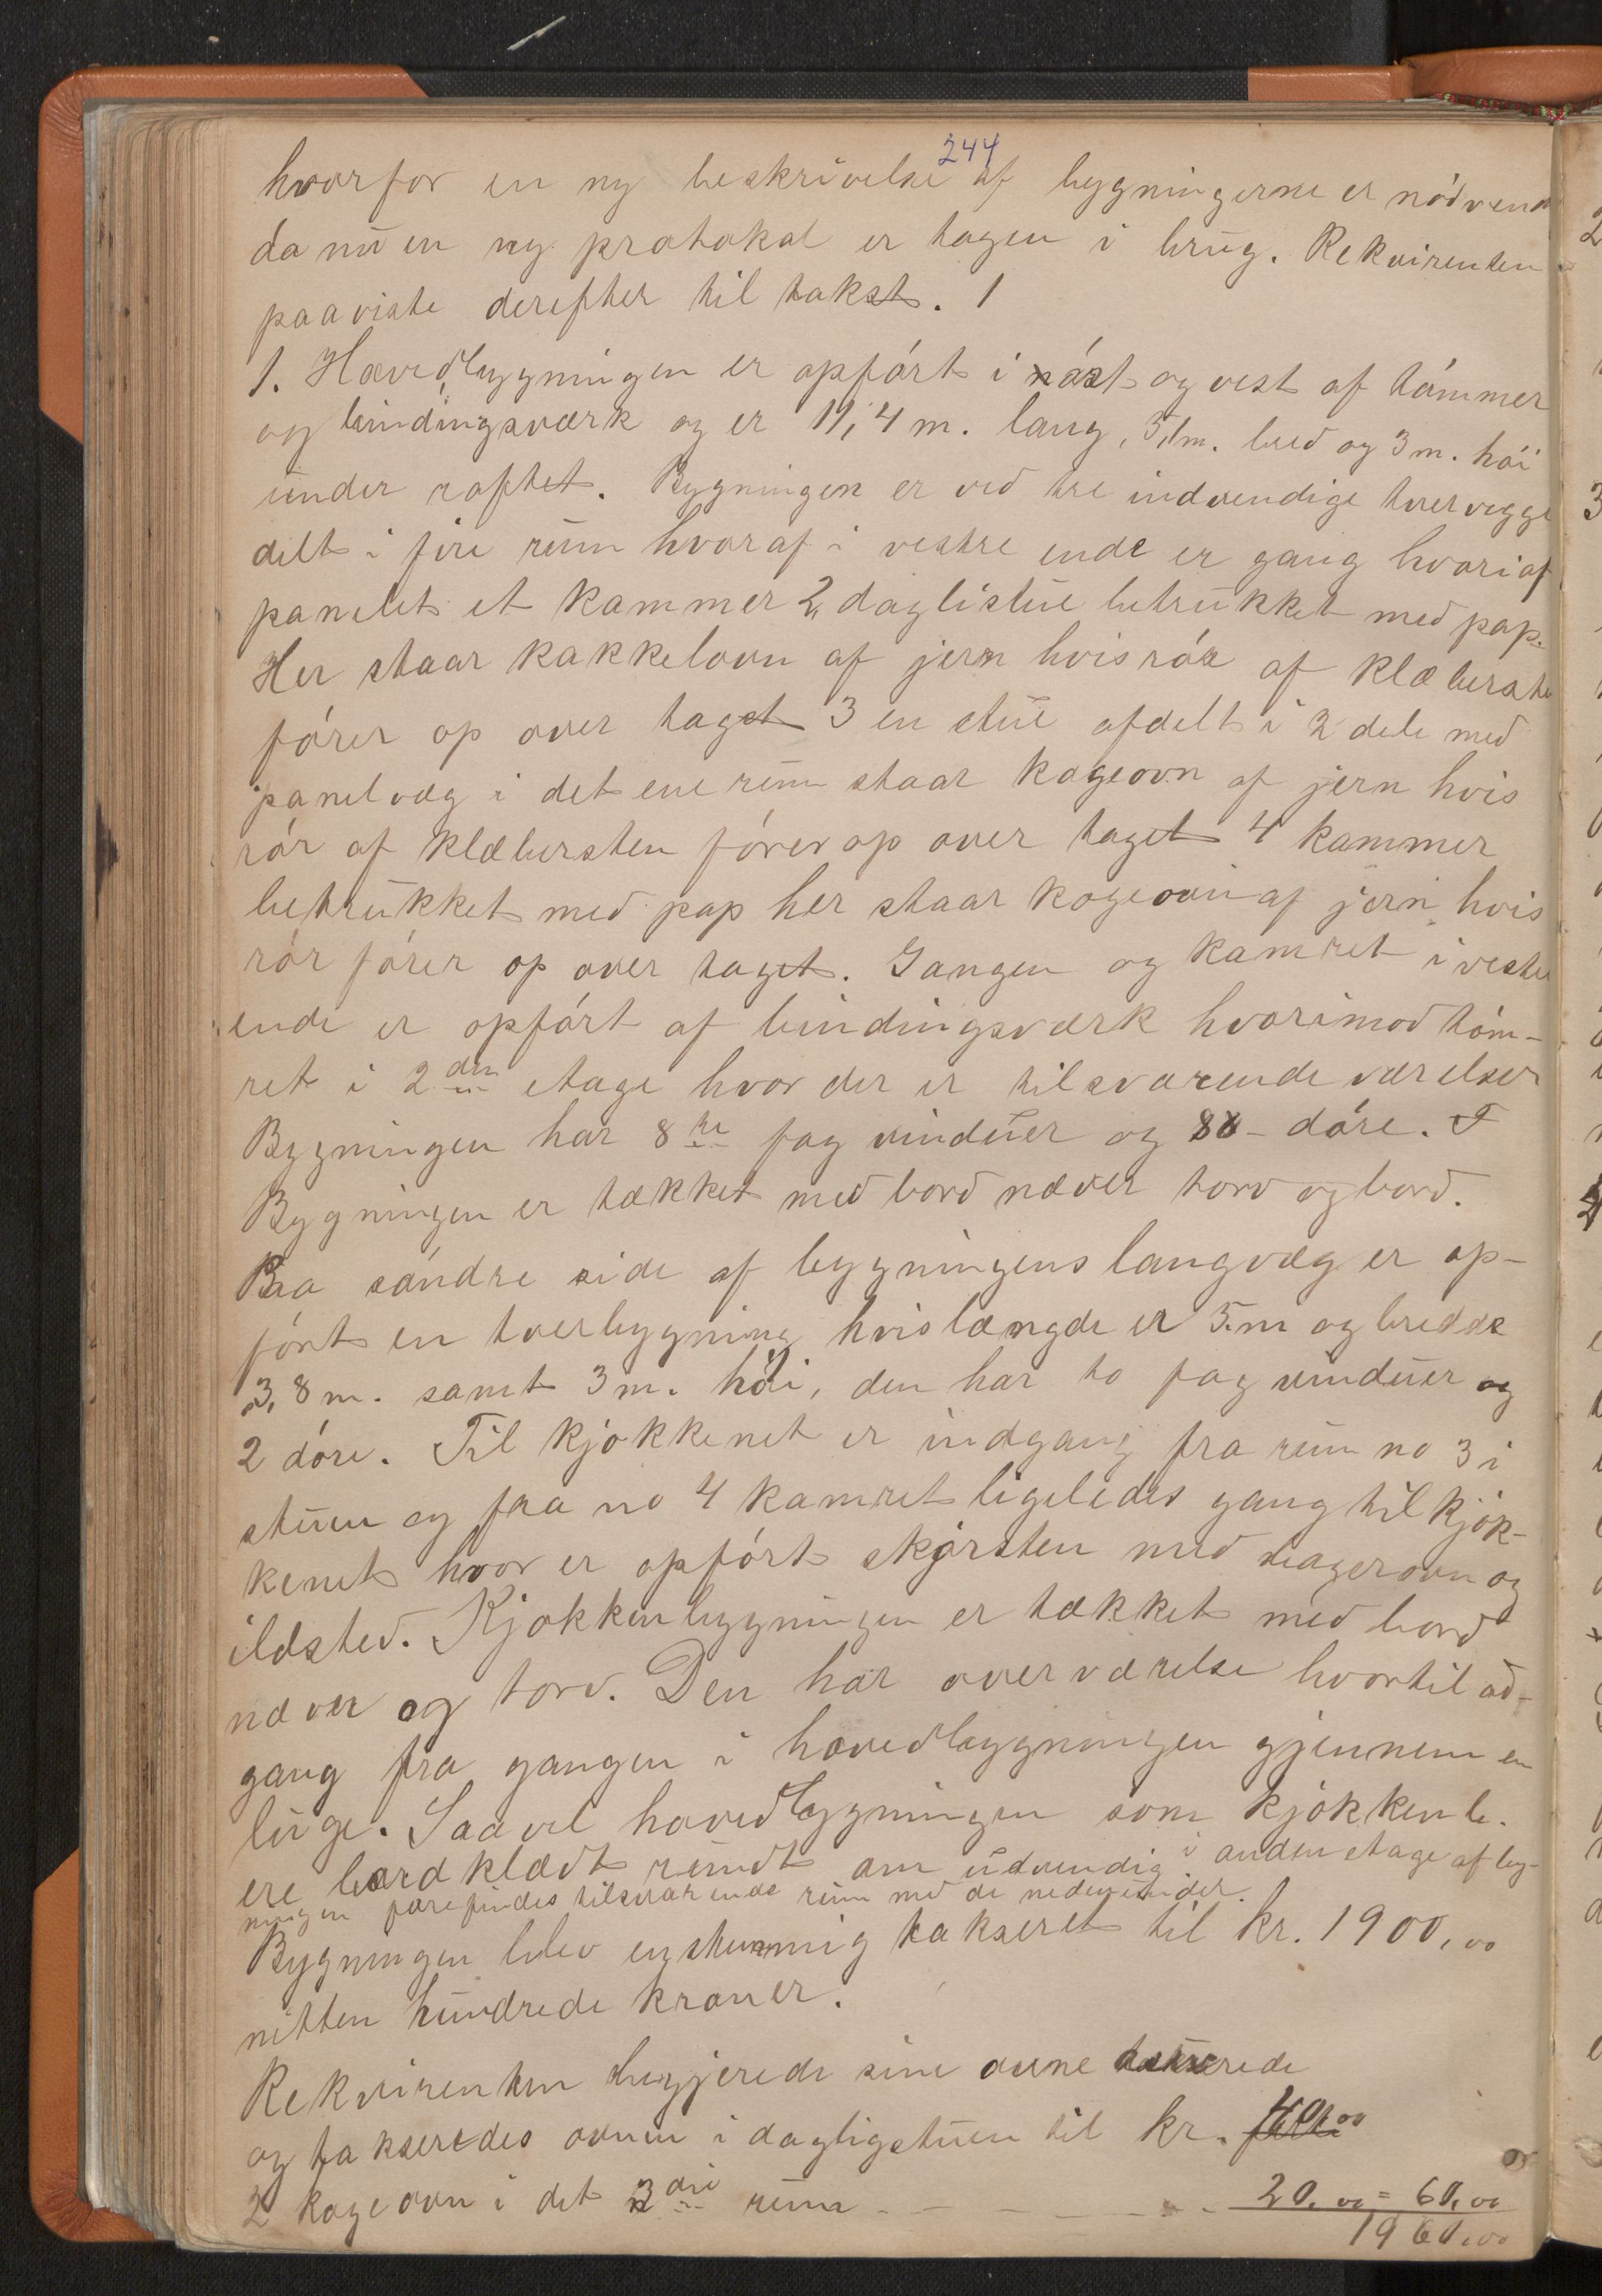 244
hvorfor en ny beskrivelse af bygningerne er nódvend
da nu en ny protokol er tagen i brug. Rekvirenten
paaviste derefter til takst. 1
1. Hovedbygningen er opfórt i óst og vest af tómmer
og bindingsværk og er 11,4 m. lang, 5,1 m. bred og 3 m. hói
under roftet. Bygningen er ved tre indvendige tvervegge
delt i fire rum hvoraf i vestre ende er gang hvori af
panelet et kammer 2, daglistue betrukket med pap.
Her staar kakkelovn af jern hvis rór af klæberste
fórer op over taget 3 en stue afdelt i 2 dele med
panelvæg i det ene rum staar kogeovn af jern hvis
rór af klæbersten fórer op over taget 4 kammer
betrukket med pap her staar kogeovn af jern hvis
rór fórer op over taget. Gangen og kamret i vestre
ende er opfórt af bindingsværk hvorimod tóm-
ret i 2den etage hvor der er tilsvarende værelser
Bygningen har 8te fag vinduer og - dóre. F
Bygningen er tækket med bord næver torv og bord.
Paa sóndre side af bygningens langvæg er op-
fórt en tverbygning hvis længde er 5. m og bredde
3,8 m. samt 3 m. hói, den har to fag vinduer og
2 dóre. Til kjókkenet er indgang fra rum no 3 i
stuen og fra no 4 kamret ligeledes gang til kjók-
kenet hvor er opfórt skorsten med bagerovn og
ildsted. Kjókkenbygningen er tækket med bord
næver og torv. Den har overværelse hvortil ad-
gang fra gangen i hovedbygningen gjennem en
luge. Saavel hovedbygningen som kjókkenb.
ere bordklædt rundt om udvendig. i anden etage af byg-
ningen forefindes tilsvarende rum med de nedenunder.
Bygningen blev enstemmig takseret til kr. 1900,00
nitten hundrede kroner.
Rekvirenten begjerede sine ovne takserede
og takseredes ovnen i dagligstuen til kr. 40,00
2 kogeovn i det 3die rum - - - - - 20,00 = 60,00
1960,00